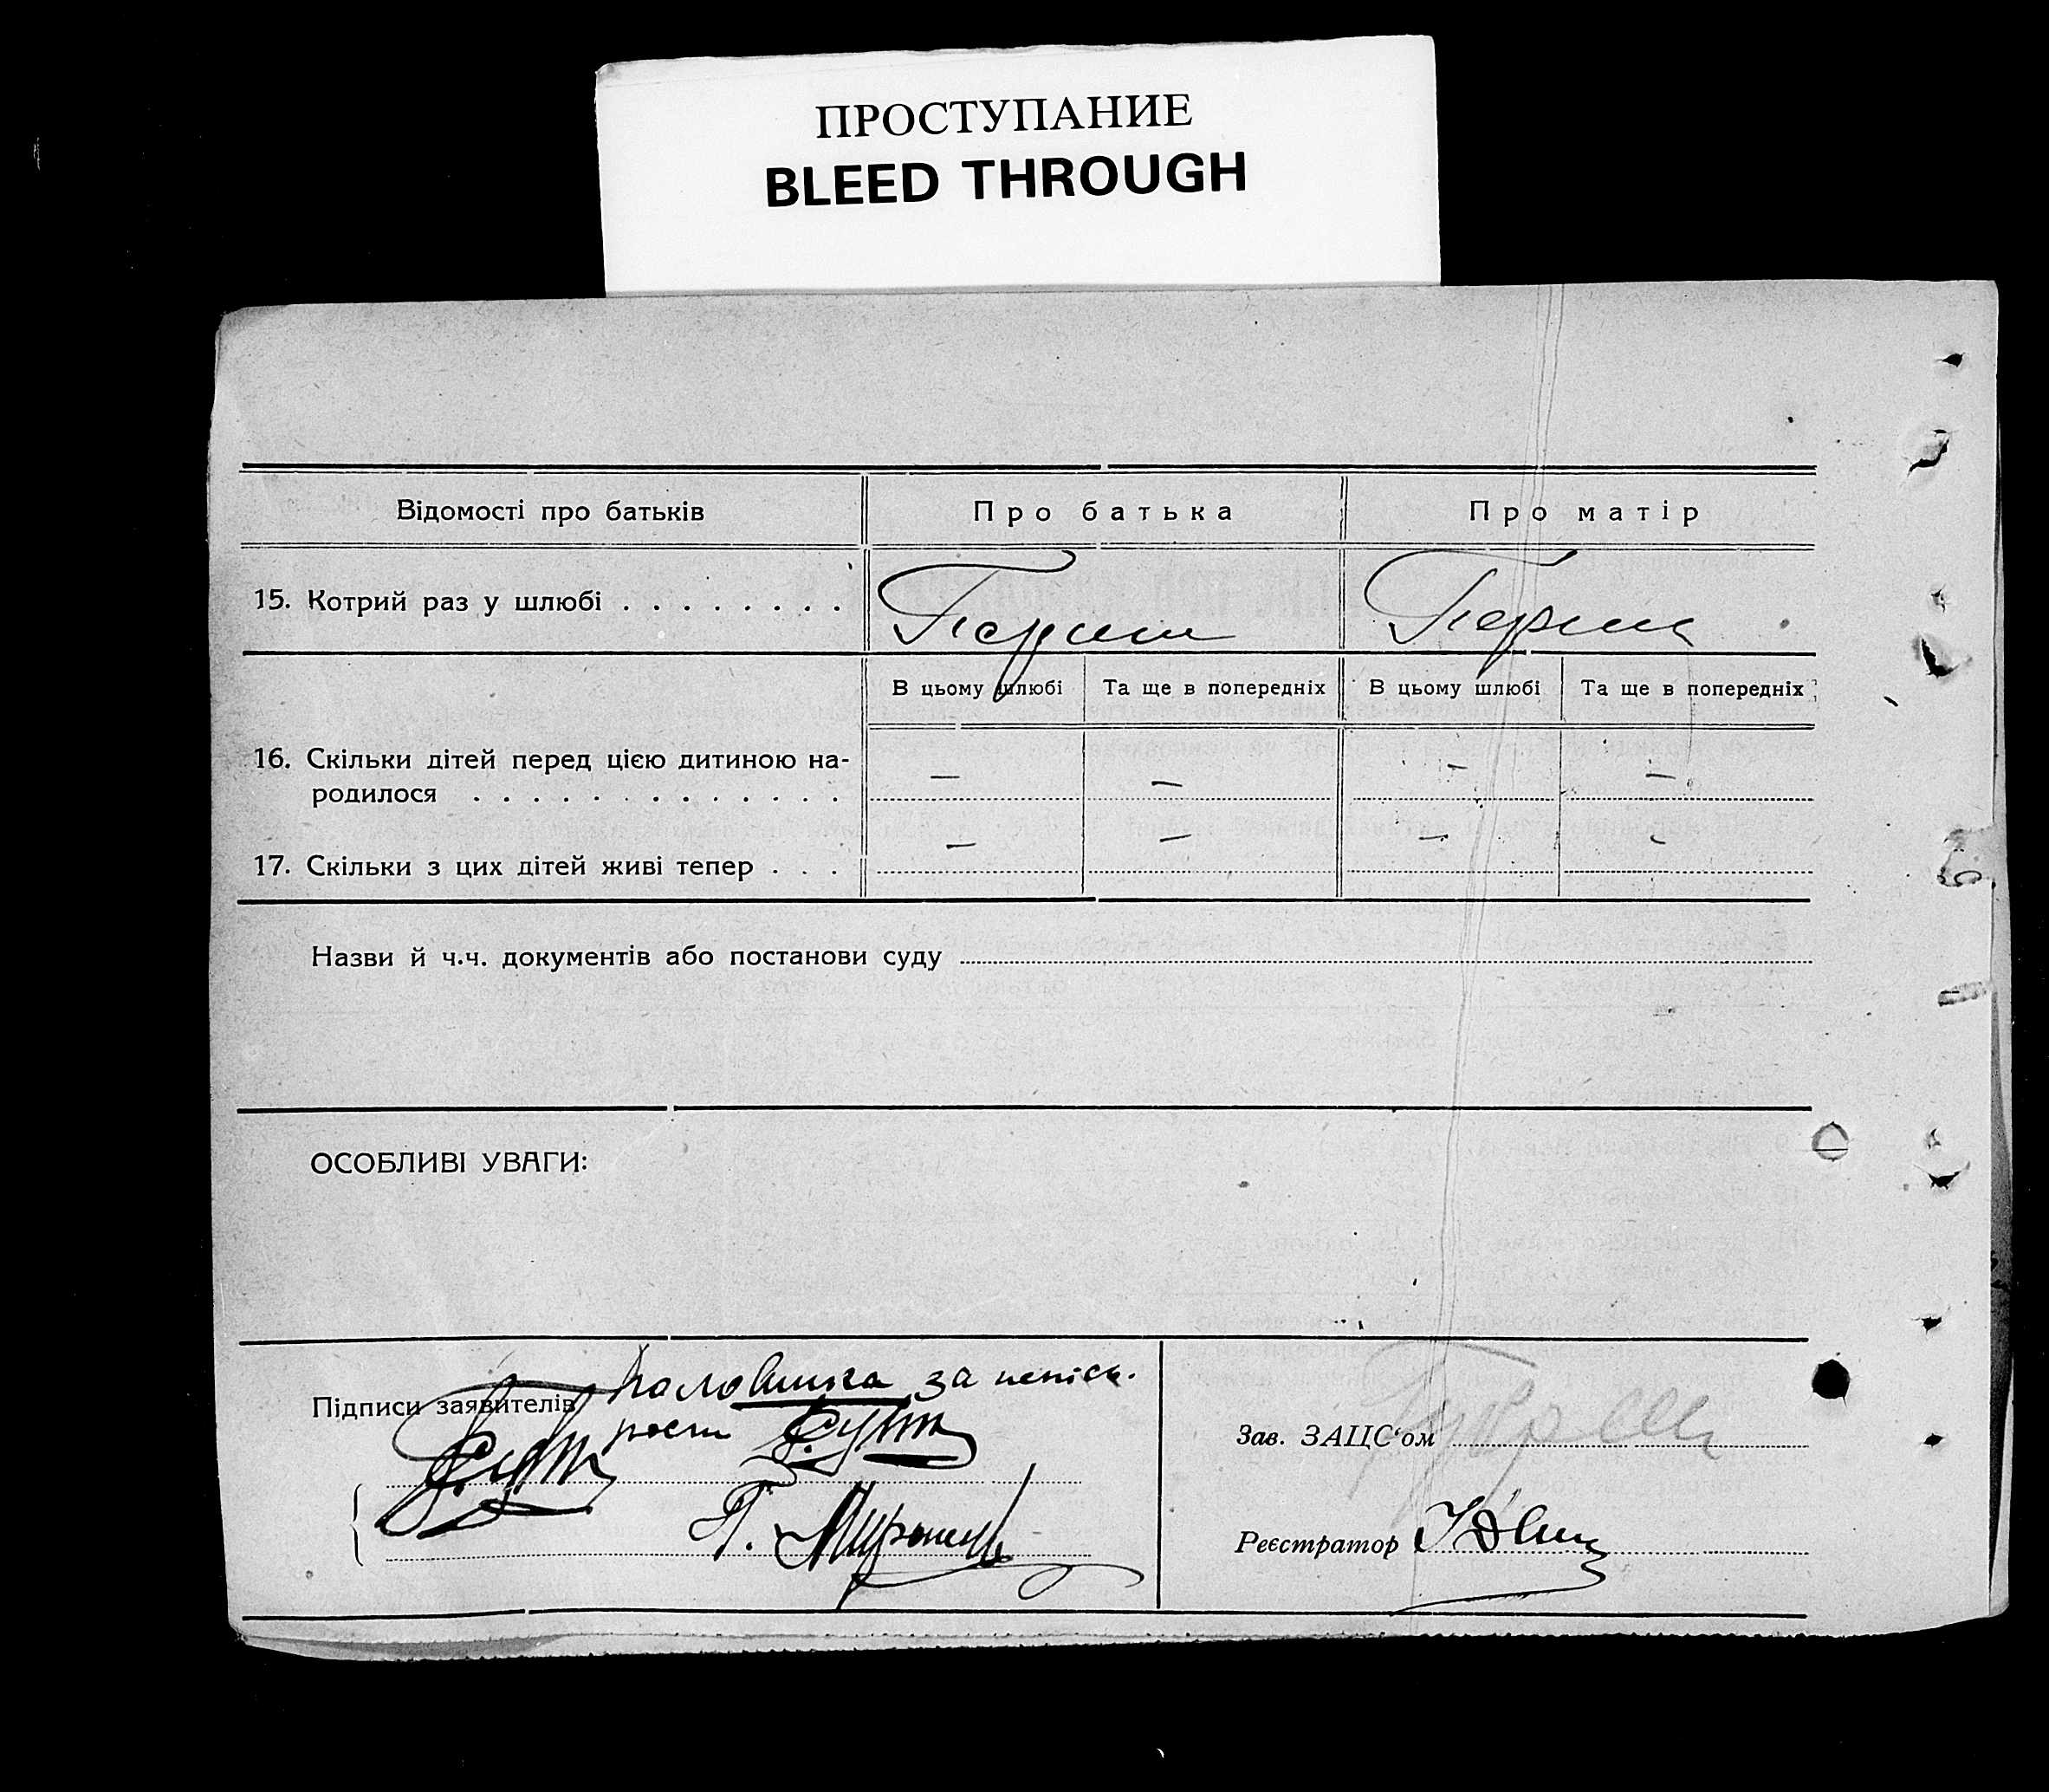 ПРОСТУПАНИЕ
BLEED THROUGH
Відомості про батьків
Про батька
Про матір
15. Котрий раз у шлюбі . . . . . . . .
В цьому шлюбі
Та ще в попередніх
В цьому шлюбі
Та ще в попередніх
16. Скільки дітей перед цією дитиною на-
родилося . . . . . . . . . . . . .
—
—
—
—
17. Скільки з цих дітей живі тепер . . .
—
—
—
—
Назви й ч.ч. документів або постанови суду
ОСОБЛИВІ УВАГИ:
за
Підписи заявителів
Зав. ЗАЦС‘ом
Реєстратор